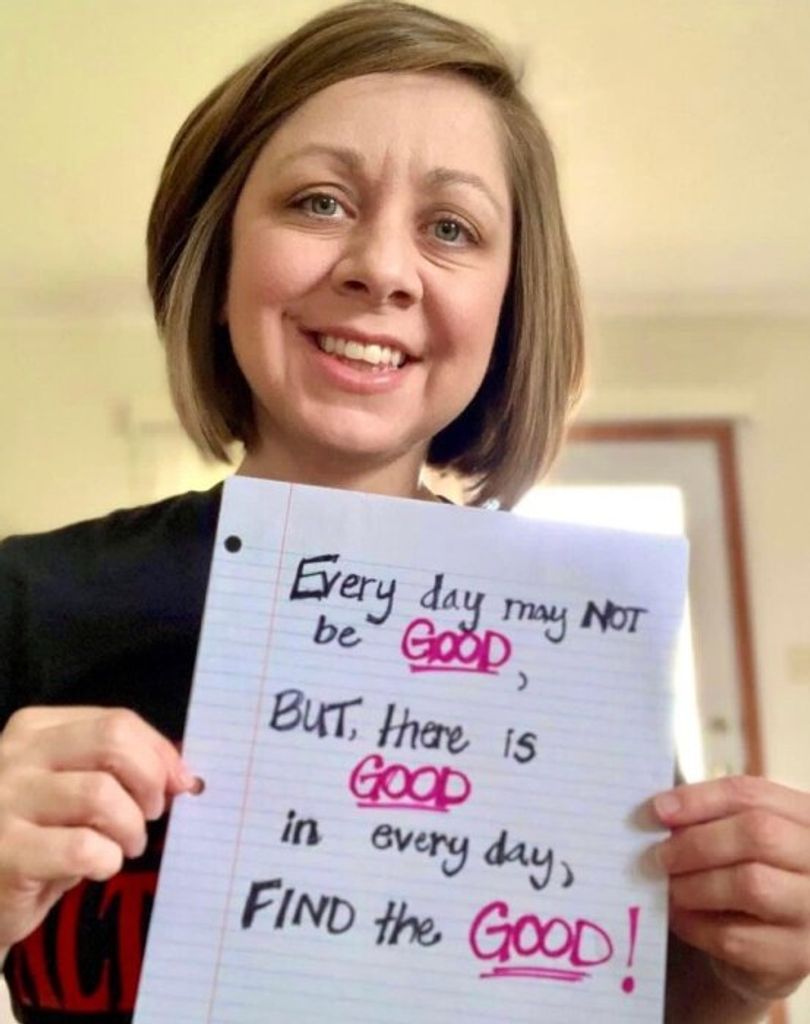 Every day may NOT
be GOOD,
BUT, there is
GOOD
in every day,
FIND the GOOD!